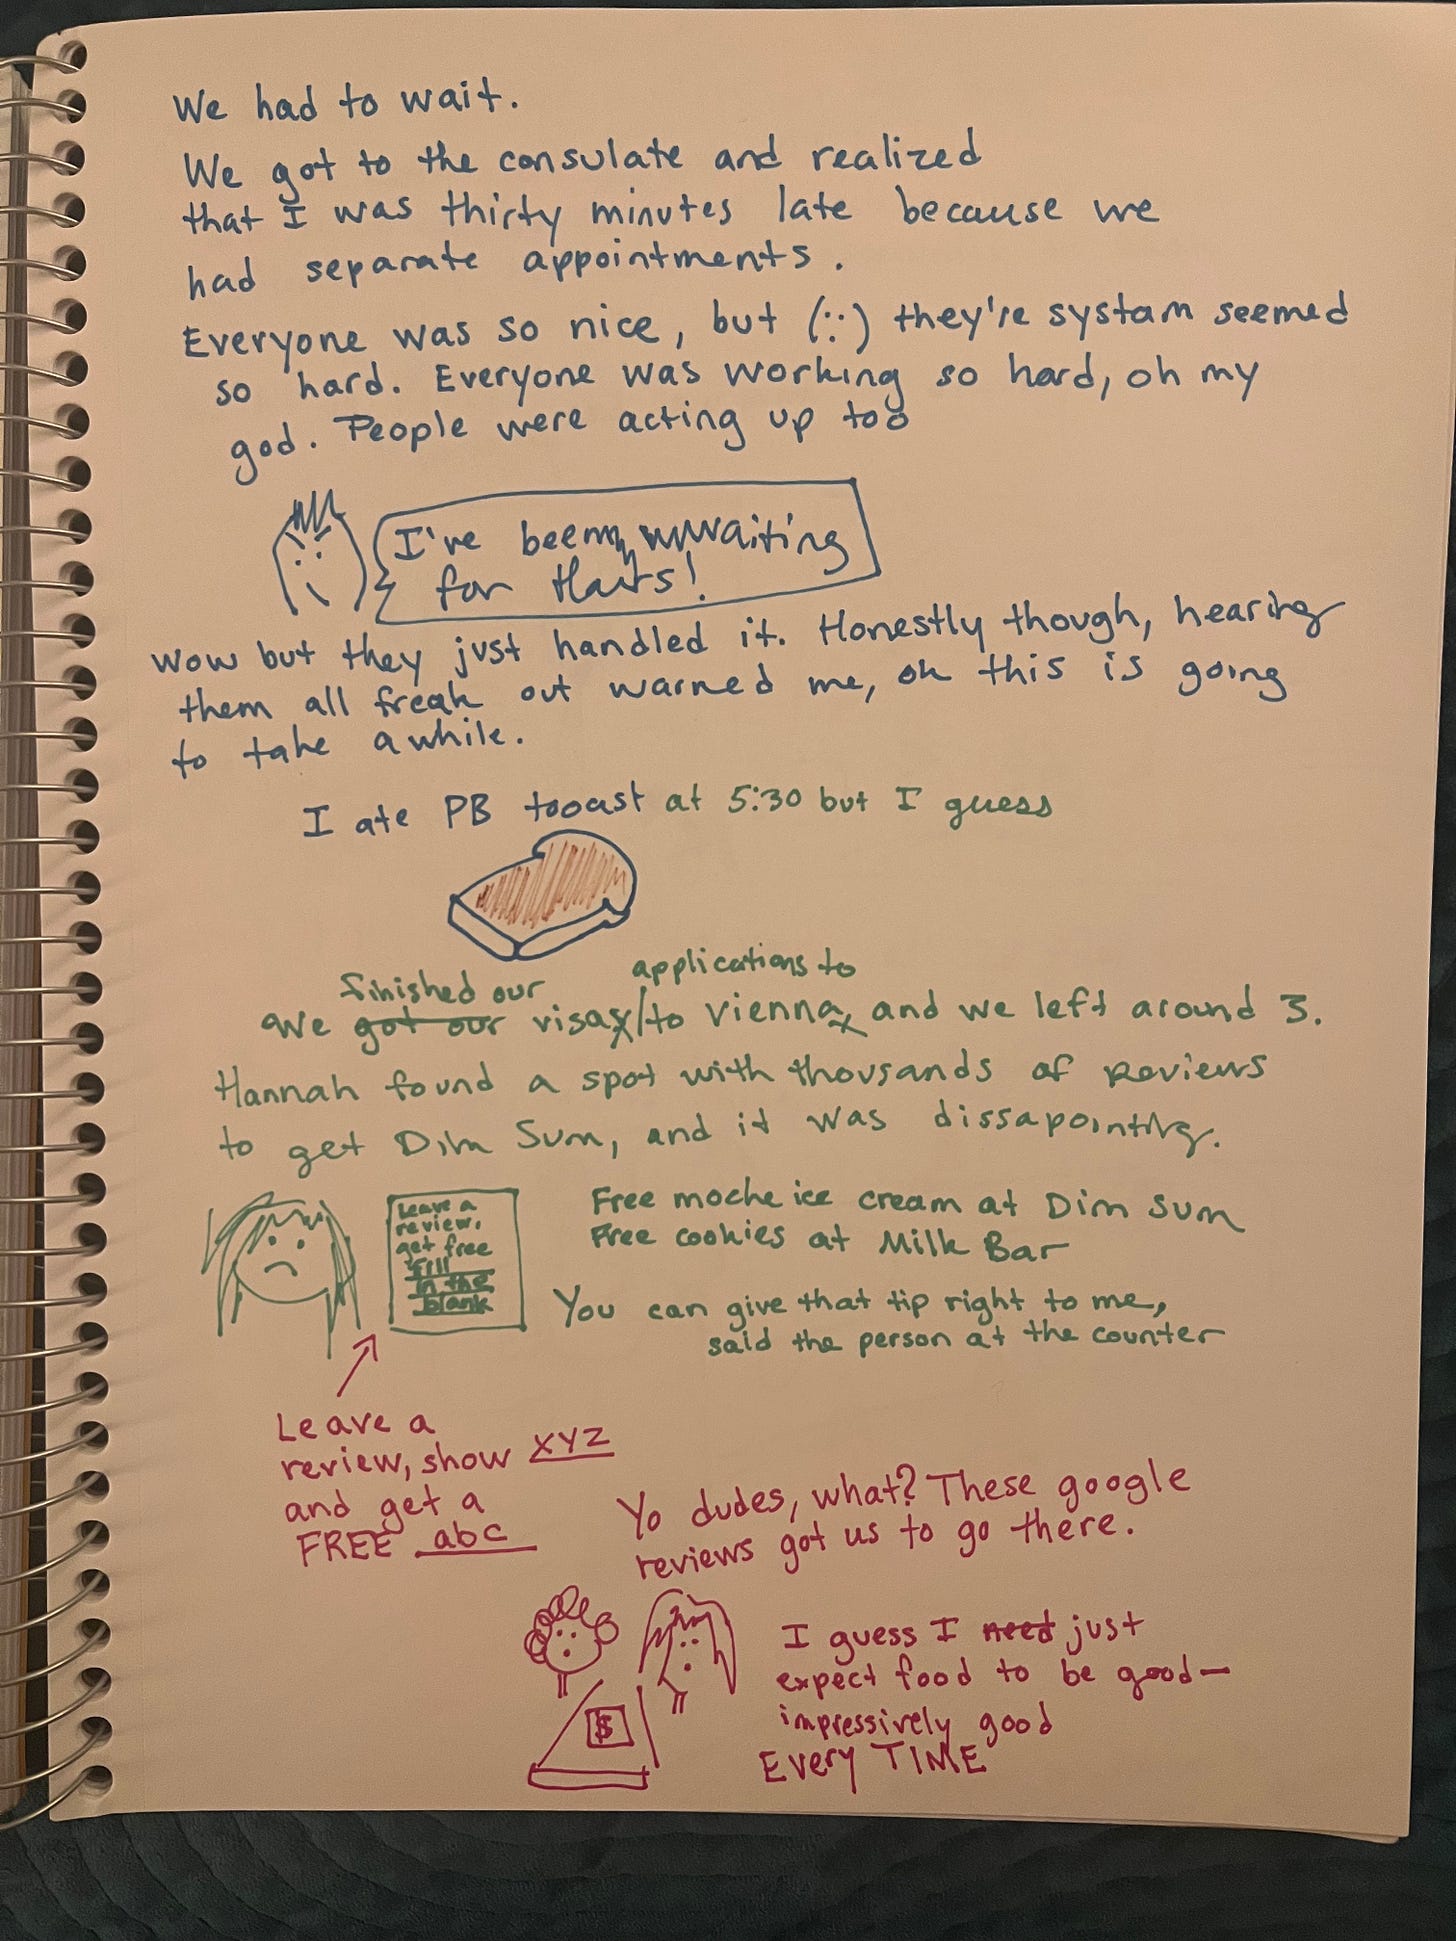 We had to wait.
We got to the consulate and realized
that I was thirty minutes late because we
had separate appointments.
Everyone was so nice, but (:·) they're systam seemed
so hard. Everyone was working so hard, oh my
god. People were acting up too
I've been waiting
for
wow but they just handled it. Honestly though, hearing
them all freak out warned me, oh this is going
to take awhile.
I ate PB tooast at 5:30 but I guess
finished our applications to
We got our visa/to Vienna and we left around 3.
Hannah found a spot with thousands of reviews
to get Dim Sum, and it was dissapointing.
Leave a
review,
get free
fill
in the
blank
Free moche ice cream at Dim Sum
Free cookies at Milk Bar
You can give that tip right to me,
said the person at the counter
Leave a
review, show XYZ
and get a
FREE abc
Yo dudes, what? These google
reviews got us to go there.
$
I guess I need just
expect food to be good—
impressively good
Every TIME